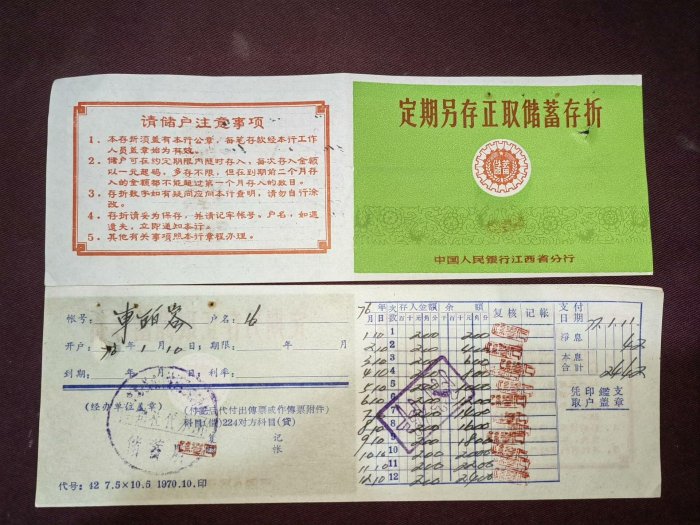 请储户注意事项
1、本存折须盖有本行公章，每笔存款经本行工作
人员盖章始为有效。
2、储户可在约定期限内随时存入，每次存入金额
以一元起码，多存不限，但在到期前二个月存
入的金额都不能超过第一个月存入的数目。
3、存折数字如有疑问应向本行查明，请勿自行涂
改。
4、存折请妥为保存，并请记牢帐号、户名，如遇
遗失，立即通知本行。
5、其他有关事项照本行章程办理。
定期另存正取储蓄存折
储蓄
中国人民银行江西省分行
帐号： 户名：16
开户：76年1月10日 期限： 年 月
到期： 年 月 日 利率：
(经办单位盖章) (付讫后代付出傳票或作傳票附件)
科目(借)224对方科目(貸)
复 记
帐
储蓄
代号：42 7.5×10.5 1970.10.印
76年 次 存入金额 余额 复核 记帐 支付
月 日 数 百十元角分 千百十元角分 日期 77.1.11
1 10 1 200 200 淨息 42
2 10 2 200 400
3 10 3 200 600 本息
4 10 4 200 800 合計 2442
5 10 5 200 1000
6 10 6 200 1200 凭印鑑支
7 10 7 200 1400 取户盖章
8 10 8 200 1600
9 10 9 200 1800
10 10 10 200 2000
11 10 11 200 2200
12 10 12 200 2400